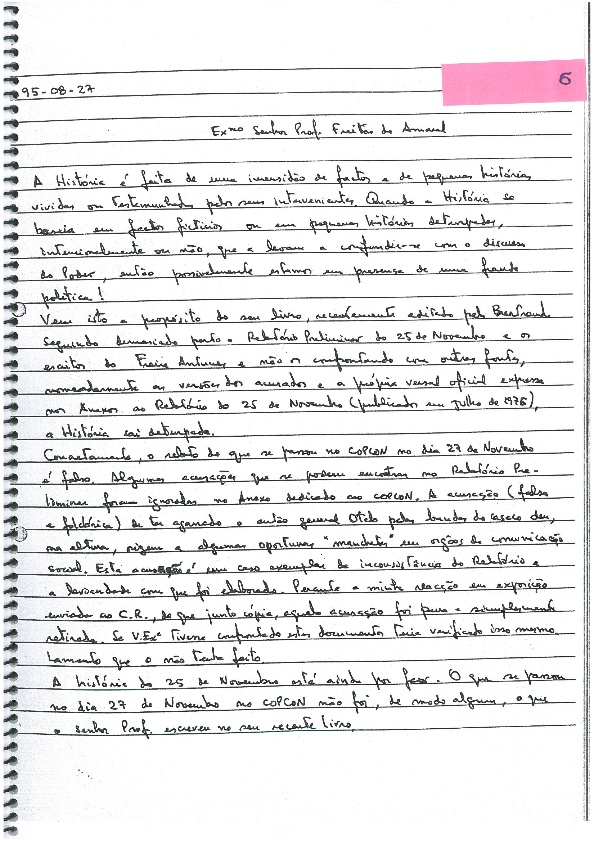 6
95-08-27
Exmo Senhor Prof. Freitas do Amaral
A História é feita de uma imensidão de factos e de pequenas histórias
vividas ou testemunhadas pelos seus intervenientes. Quando a História se
baseia em factos fictícios ou em pequenas histórias deturpadas,
intencionalmente ou não, que a levam a confundir-se com o discurso
do Poder, então possivelmente estamos em presença de uma fraude
política!
Vem isto a propósito do seu livro, recentemente editado pela Bertrand
Seguindo demasiado perto o Relatório Preliminar do 25 de Novembro e os
escritos do Freire Antunes e não os confrontando com outras fontes,
nomeadamente as versões dos acusados e a própria versão oficial expressa
nos Anexos ao Relatório do 25 de Novembro (publicados em Julho de 1976),
a História sai deturpada.
Concretamente, o relato do que se passou no COPCON no dia 27 de Novembro
é falso. Algumas acusações que se podem encontrar no Relatório Pre-
liminar foram ignoradas no Anexo dedicado ao COPCON. A acusação (falsa
e folclórica) de ter agarrado o então general Otelo pelas bandas do casaco deu,
na altura, origem a algumas oportunas "manchetes" em orgãos de comunicação
social. Esta acusação é um caso exemplar da inconsistência do Relatório e
a leviandade com que foi elaborado. Perante a minha reacção em exposição
enviada ao C.R., de que junto cópia, aquela acusação foi pura e simplesmente
retirada. Se V.Exª tivesse confrontado estes documentos teria verificado isso mesmo.
Lamento que o não tenha feito.
A história do 25 de Novembro está ainda por fazer. O que se passou
no dia 27 de Novembro no COPCON não foi, de modo algum, o que
o Senhor Prof. escreveu no seu recente livro.